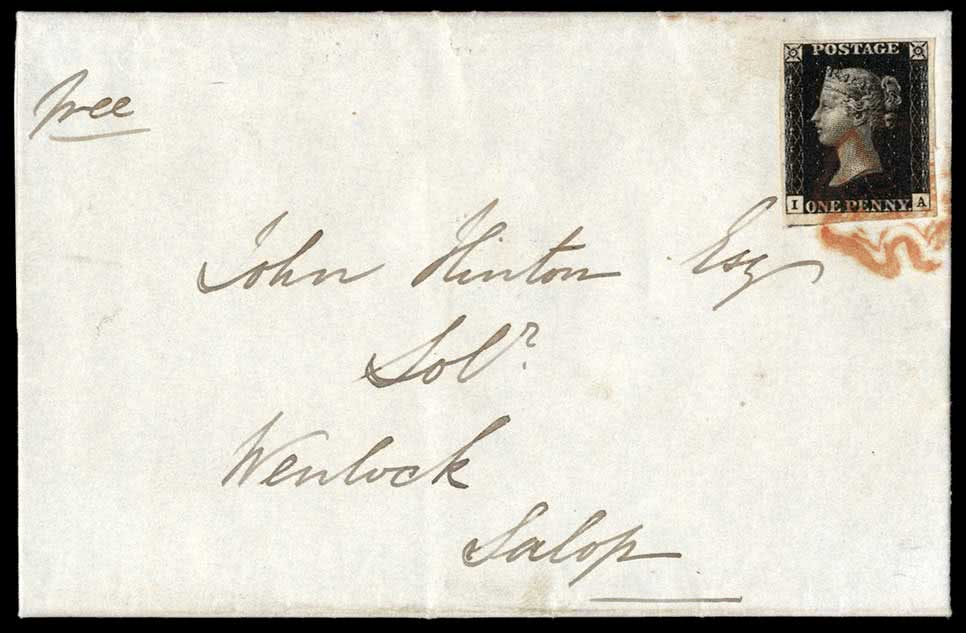 free
POSTAGE
I ONE PENNY A
John Hinton Esq
Solr.
Wenlock
Salop